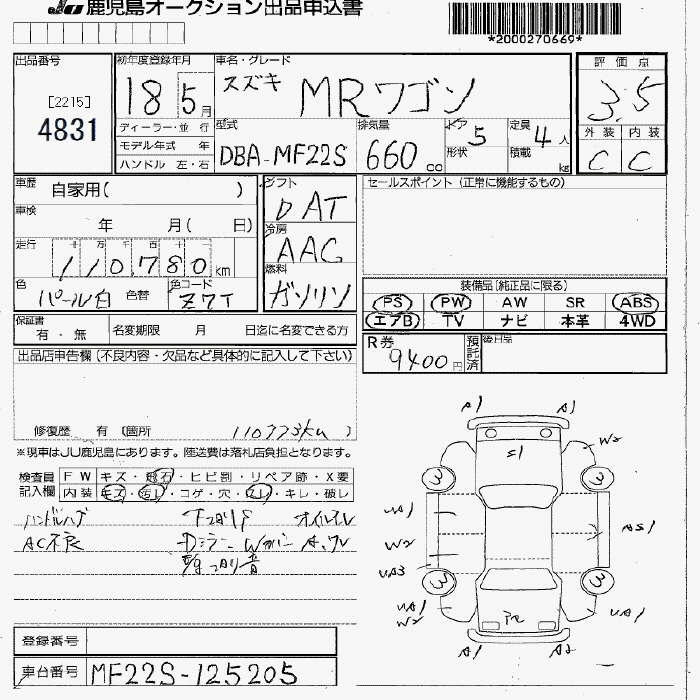 JU 鹿児島オークション出品申込書
*2000270669*
出品番号
[2215]
4831
初年度登録年月
18 5 月
ディーラー・並 行
モデル年式 年
ハンドル 左・右
車名・グレード
スズキ MRワゴン
型式
DBA-MF22S
排気量
660 cc
ドア 5
形状
定員 4 人
積載 kg
評 価 点
3.5
外 装 内 装
C C
車歴 自家用( )
車検
年 月( 日)
走行 十 万 千 百 十 一
110,780 km
色 パール白 色替
色コード Z7T
シフト
DAT
冷房
AAC
燃料
ガソリン
セールスポイント (正常に機能するもの)
装備品(純正品に限る)
PS PW AW SR ABS
エアB TV ナビ 本革 4WD
保証書
有・無
名変期限 月 日迄に名変できる方
R券
9400円
預託済
後日品
出品店申告欄(不良内容・欠品など具体的に記入して下さい)
修復歴 有 (箇所 110773km )
※現車はJU鹿児島にあります。陸送費は落札店負担となります。
検査員
記入欄
F W キズ・飛石・ヒビ割・リペア跡・X要
内 装 キズ・汚レ・コゲ・穴・スレ・キレ・破レ
ハンドルハゲ 下回りサビ オイルモレ
AC不良
A1 A1
S1
W2
3 3
UA1
AS1
W2
UA3
3 3
UA1
W2
UA1
A1 A2
登録番号
車台番号 MF22S-125205